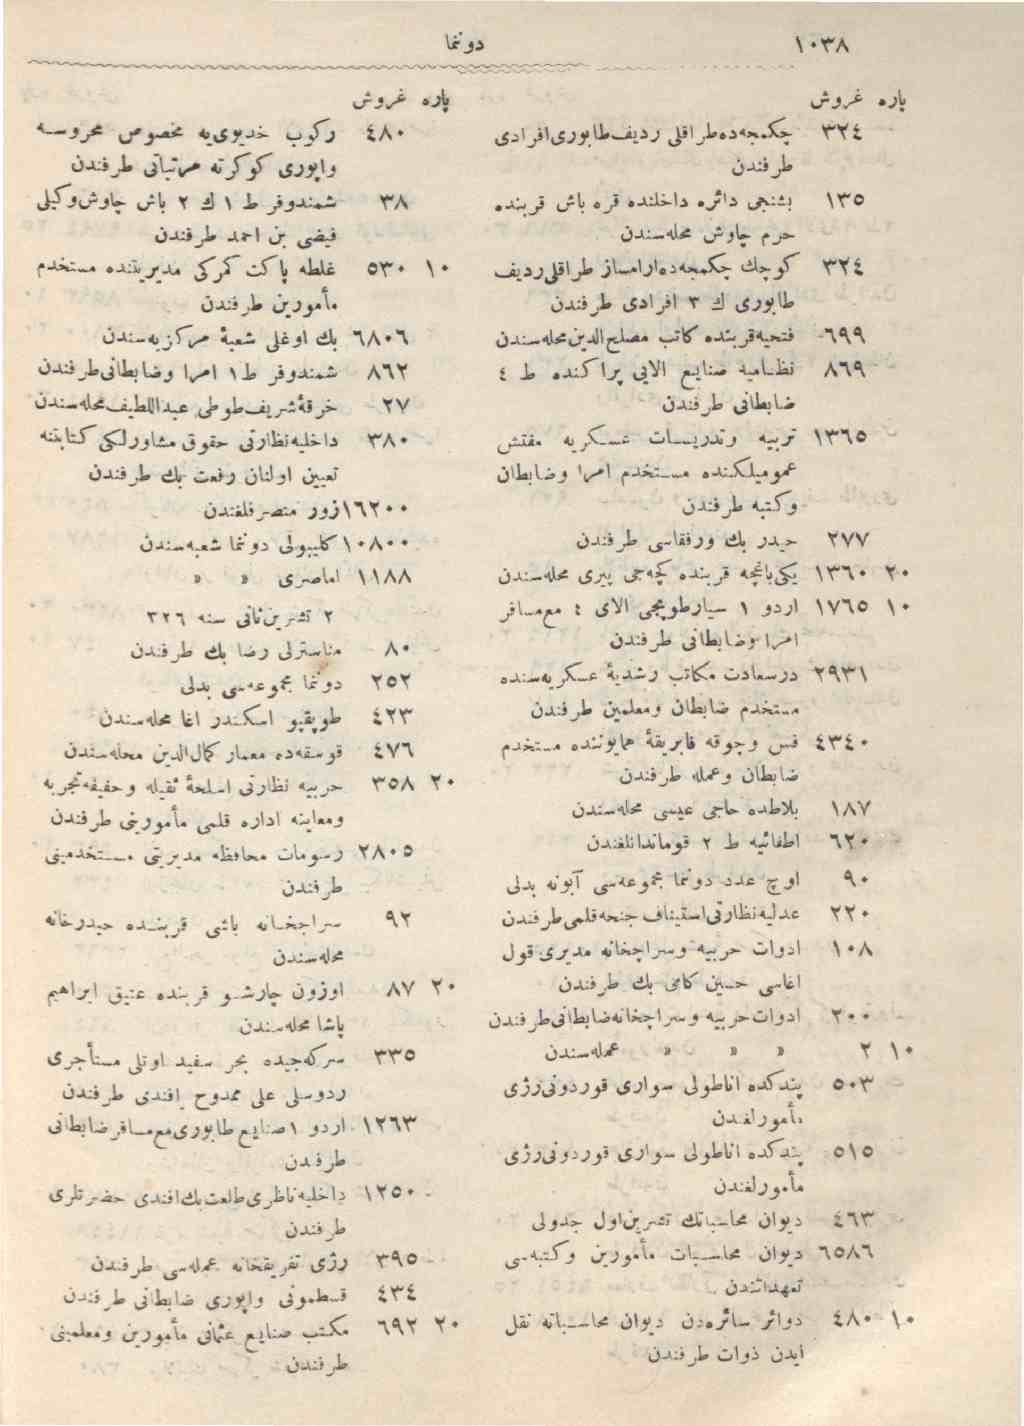 ١٠٣٨
دوننما
پاره غروش
٣٢٤ چكمجه‌ده طراقلی ردیف طابوری افرادی
طرفندن
١٣٥ بشنجی دائره داخلنده قره باش قربنده
حرم چاوش محله‌سندن
٣٢٤ كوچك چكمجه‌ده آرامساز طراقلی ردیف
طابوری ك ٣ افرادی طرفندن
٦٩٩ فتحیه قربنده كاتب مصلح الدین محله‌سندن
٨٦٩ نظامیه صنایع الایی پراكنده ط ٤
ضابطانی طرفندن
١٣٦٥ تربیه وتدریسات عسكریه مفتش
عمومیلكنده مستخدم امرا وضابطان
وكتبه طرفندن
٢٧٧ حیدر بك ورفقاسی طرفندن
٢٠ ١٣٦٠ یكی باغچه قربنده كچه‌جی پیری محله‌سندن
١٠ ١٧٦٥ اردو ١ سیار طوپچی الای ٤ مع مسافر
امرا وضابطانی طرفندن
٢٩٣١ درسعادت مكاتب رشدیهٔ عسكریه‌سنده
مستخدم ضابطان ومعلمین طرفندن
٤٣٤٠ فس وچوقه فابریقهٔ همایوننده مستخدم
ضابطان وعمله طرفندن
١٨٧ بلاطده حاجی عیسی محله‌سندن
٦٢٠ اطفائیه ط ٢ قوماندانلغندن
٩٠ اوچ عدد دوننما مجموعه‌سی آبونه بدلی
٢٢٠ عدلیه نظارتی استیناف جنحه قلمی طرفندن
١٠٨ ادوات حربیه وسراجخانه مدیری قول
اغاسی حسین كامی بك طرفندن
٢٠٠ ادوات حربیه وسراجخانه ضابطانی طرفندن
١٠ ٢ » » » عمله‌سندن
٥٠٣ پندكده اناطولی سواری قوردونی رژی
مأمورلغندن
٥١٥ پندكده اناطولی سواری قوردونی رژی
مأمورلغندن
٤٦٣ دیوان محاسباتك تشرین اول جدولی
٦٥٨٦ دیوان محاسبات مأمورین وكتبه‌سی
تعهداتندن
١٠ ٤٨٠ دوائر سائره‌دن دیوان محاسباته نقل
ایدن ذوات طرفندن
پاره غروش
٤٨٠ ركوب خدیوی‌یه مخصوص محروسه
واپوری كوكرته مرتباتی طرفندن
٣٨ شمندوفر ط ١ ك ٢ باش چاوش وكیلی
فیضی بن احمد طرفندن
١٠ ٥٣٠ غلطه پاكت كمركی مدیریتنده مستخدم
مأمورین طرفندن
٦٨٠٦ بك اوغلی شعبهٔ مركزیه‌سندن
٨٦٢ شمندوفر ط ١ امرا وضابطانی طرفندن
٢٧ خرقهٔ شریف طوطی عبداللطیف محله‌سندن
٣٨٠ داخلیه نظارتی حقوق مشاورلكی كتابتنه
تعیین اولنان رفعت بك طرفندن
١٦٢٠٠ زور متصرفلغندن
١٠٨٠٠ كلیبولی دوننما شعبه‌سندن
١١٨٨ اماصری » »
٢ تشرین ثانی سنه ٣٢٦
٨٠ مناسترلی رضا بك طرفندن
٢٥٢ دوننما مجموعه‌سی بدلی
٤٢٣ طوپقپو اسكندر اغا محله‌سندن
٤٧٦ قوسقه‌ده معمار كمال الدین محله‌سندن
٢٠ ٣٥٨ حربیه نظارتی اسلحهٔ ثقیله وخفیفه تجربه
ومعاینه اداره قلمی مأمورینی طرفندن
٢٨٠٥ رسومات محافظه مدیریتی مستخدمینی
طرفندن
٩٢ سراجخانه باشی قربنده حیدرخانه
محله‌سندن
٢٠ ٨٧ اوزون چارشو قربنده عتیق ابراهیم
پاشا محله‌سندن
٣٣٥ سركه‌جیده بحر سفید اوتلی مستأجری
ردوسلی علی ممدوح افندی طرفندن
١٢٦٣ اردو ١ صنایع طابوری مع مسافر ضابطانی
طرفندن
١٢٥٠ داخلیه ناظری طلعت بك افندی حضرتلری
طرفندن
٣٩٥ رژی تفریقخانه عمله‌سی طرفندن
٤٣٤ قسطمونی واپوری ضابطانی طرفندن
٢٠ ٦٩٢ مكتب صنایع عثمانی مأمورین ومعلمینی
طرفندن